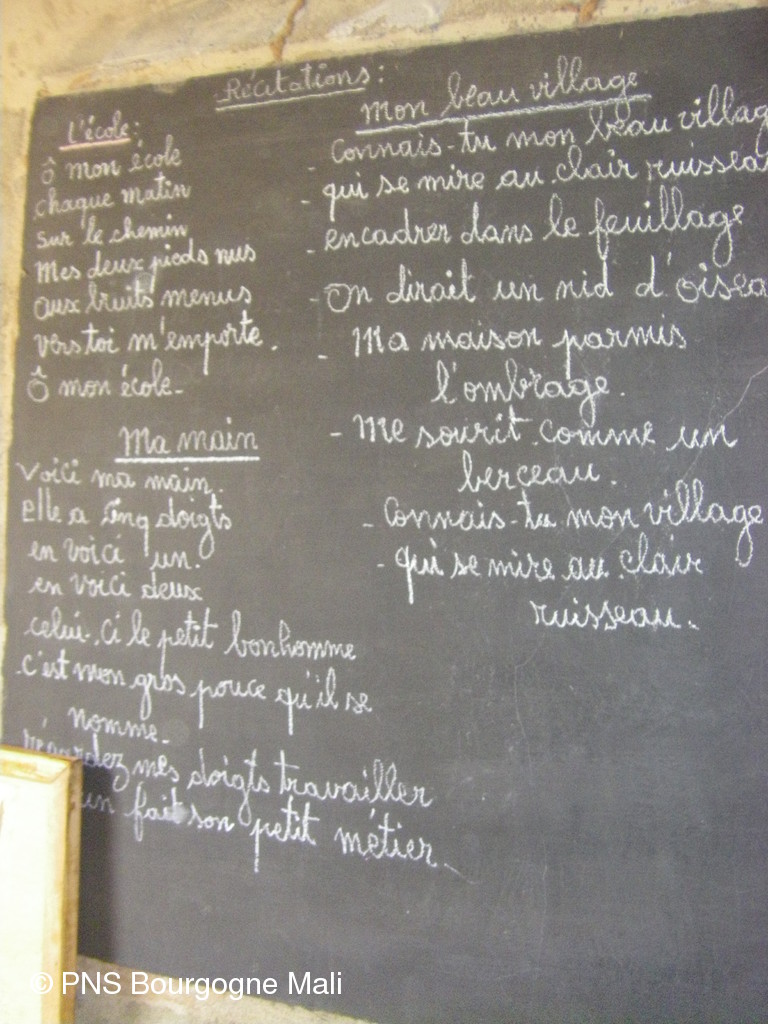 Récitations:
L'école:
Ô mon école
chaque matin
sur le chemin
Mes deux pieds nus
aux bruits menus
vers toi m'emporte.
Ô mon école-
Ma main
Voici ma main.
elle a cinq doigts
en voici un.
en voici deux
celui-ci le petit bonhomme
c'est mon gros pouce qu'il se
nomme-
mes doigts travailler
un fait son petit métier
Mon beau village
- Connais-tu mon beau villag
- qui se mire au clair ruissea
- encadrer dans le feuillage
- On dirait un nid d'oisea
- Ma maison parmis
l'ombrage.
- Me sourit comme un
berceau.
- Connais-tu mon village
- qui se mire au clair
ruisseau.
© PNS Bourgogne Mali